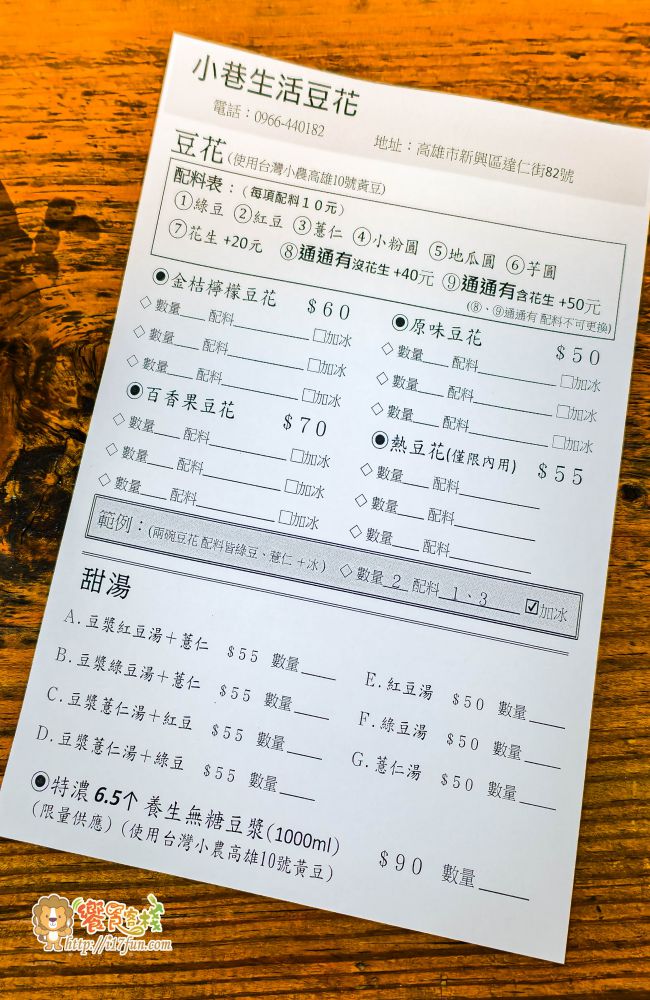 小巷生活豆花
電話：0966-440182
地址：高雄市新興區達仁街82號
豆花(使用台灣小農高雄10號黃豆)
配料表：(每項配料10元)
①綠豆 ②紅豆 ③薏仁 ④小粉圓 ⑤地瓜圓 ⑥芋圓
⑦花生 +20元 ⑧通通有沒花生 +40元 ⑨通通有含花生 +50元
(⑧、⑨通通有 配料不可更換)
◉金桔檸檬豆花 $60
◇數量___配料________□加冰
◇數量___配料________□加冰
◇數量___配料________□加冰
◉原味豆花 $50
◇數量___配料________□加冰
◇數量___配料________□加冰
◇數量___配料________□加冰
◉百香果豆花 $70
◇數量___配料________□加冰
◇數量___配料________□加冰
◇數量___配料________□加冰
◉熱豆花(僅限內用) $55
◇數量___配料________
◇數量___配料________
◇數量___配料________
範例：(兩碗豆花 配料皆綠豆、薏仁＋冰) ◇數量 2 配料 1、3 ☑加冰
甜湯
A.豆漿紅豆湯＋薏仁 $55 數量___
B.豆漿綠豆湯＋薏仁 $55 數量___
C.豆漿薏仁湯＋紅豆 $55 數量___
D.豆漿薏仁湯＋綠豆 $55 數量___
E.紅豆湯 $50 數量___
F.綠豆湯 $50 數量___
G.薏仁湯 $50 數量___
◉特濃 6.5个 養生無糖豆漿(1000ml)
(限量供應)(使用台灣小農高雄10號黃豆) $90 數量____
饗食客棧
http://i17fun.com